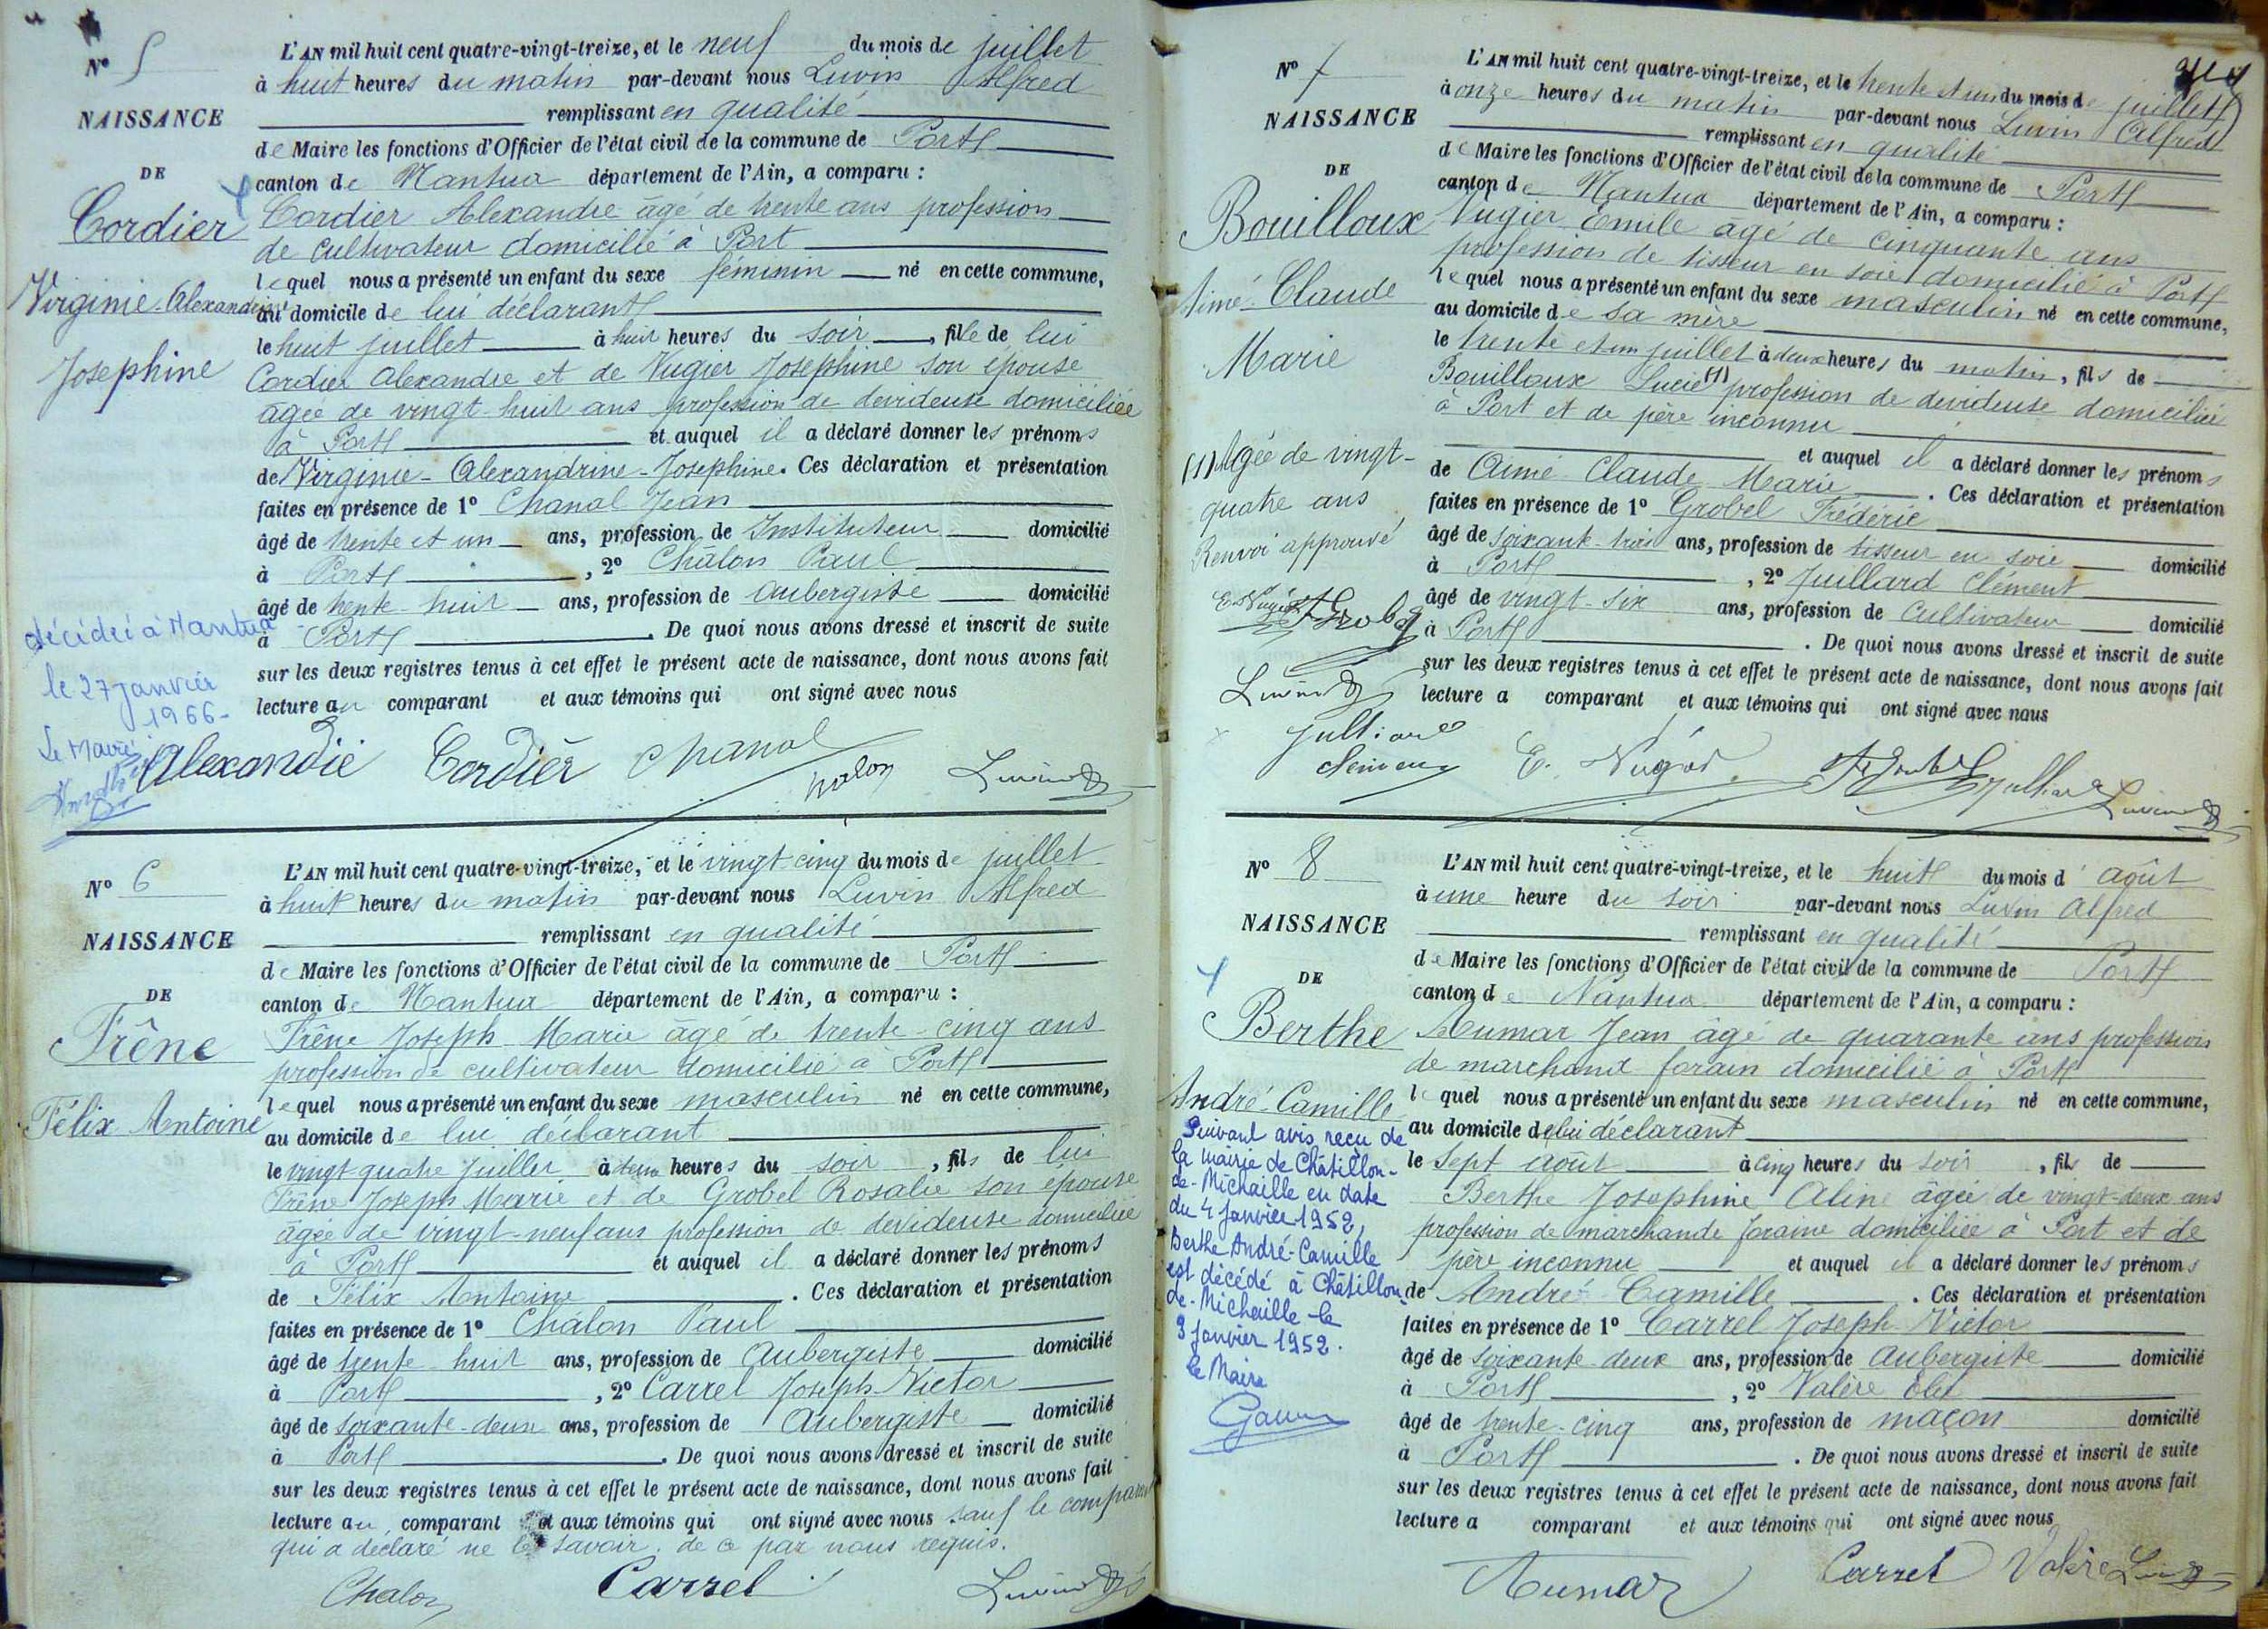 N° 5
NAISSANCE
DE
Cordier
Virginie-Alexandrine
Josephine
décédée à Nantua
le 27 janvier
1966-
Le Maire
L'AN mil huit cent quatre-vingt-treize, et le neuf du mois de juillet
à huit heures du matin par-devant nous Luvin Alfred
remplissant en qualité
de Maire les fonctions d'Officier de l'état civil de la commune de Port
canton de Nantua département de l'Ain, a comparu :
Cordier Alexandre âgé de trente ans profession
de cultivateur domicilié à Port
lequel nous a présenté un enfant du sexe féminin né en cette commune,
au domicile de lui déclarant
le huit juillet à huit heures du soir, fille de lui
Cordier Alexandre et de Vugier Josephine son épouse
âgée de vingt-huit ans profession de dévideuse domiciliée
à Port et auquel il a déclaré donner les prénoms
de Virginie-Alexandrine-Josephine. Ces déclaration et présentation
faites en présence de 1° Chanal Jean
âgé de trente et un ans, profession de Instituteur domicilié
à Port, 2° Châlon Paul
âgé de trente huit ans, profession de Aubergiste domicilié
à Port. De quoi nous avons dressé et inscrit de suite
sur les deux registres tenus à cet effet le présent acte de naissance, dont nous avons fait
lecture au comparant et aux témoins qui ont signé avec nous
Alexandre Cordier Chanal Chalon Luvin
N° 6
NAISSANCE
DE
Frêne
Félix Antoine
L'AN mil huit cent quatre-vingt-treize, et le vingt cinq du mois de juillet
à huit heures du matin par-devant nous Luvin Alfred
remplissant en qualité
de Maire les fonctions d'Officier de l'état civil de la commune de Port
canton de Nantua département de l'Ain, a comparu :
Frêne Joseph Marie âgé de trente-cinq ans
profession de cultivateur domicilié à Port
lequel nous a présenté un enfant du sexe masculin né en cette commune,
au domicile de lui déclarant
le vingt quatre juillet à deux heures du soir, fils de lui
Frêne Joseph Marie et de Grobel Rosalie son épouse
âgée de vingt-neuf ans profession de dévideuse domiciliée
à Port et auquel il a déclaré donner les prénoms
de Félix Antoine. Ces déclaration et présentation
faites en présence de 1° Châlon Paul
âgé de trente huit ans, profession de Aubergiste domicilié
à Port, 2° Carrel Joseph-Victor
âgé de soixante-deux ans, profession de Aubergiste domicilié
à Port. De quoi nous avons dressé et inscrit de suite
sur les deux registres tenus à cet effet le présent acte de naissance, dont nous avons fait
lecture au comparant et aux témoins qui ont signé avec nous sauf le comparant
qui a déclaré ne le savoir. de ce par nous requis.
Chalon Carrel Luvin
N° 7
NAISSANCE
DE
Bouilloux
Aimé-Claude
Marie
(1) Agée de vingt-
quatre ans
Renvoi approuvé
E. Vugier F Grobel
Luvin
Julliard
Clément
L'AN mil huit cent quatre-vingt-treize, et le trente et un du mois de juillet
à onze heures du matin par-devant nous Luvin Alfred
remplissant en qualité
de Maire les fonctions d'Officier de l'état civil de la commune de Port
canton de Nantua département de l'Ain, a comparu :
Vugier Émile âgé de cinquante ans
profession de tisseur en soie domicilié à Port
lequel nous a présenté un enfant du sexe masculin né en cette commune,
au domicile de sa mère
le trente et un juillet à deux heures du matin, fils de
Bouilloux Lucie (1) profession de dévideuse domiciliée
à Port et de père inconnu
et auquel il a déclaré donner les prénoms
de Aimé Claude Marie. Ces déclaration et présentation
faites en présence de 1° Grobel Frédéric
âgé de soixante-trois ans, profession de tisseur en soie domicilié
à Port, 2° Juillard Clément
âgé de vingt-six ans, profession de Cultivateur domicilié
à Port. De quoi nous avons dressé et inscrit de suite
sur les deux registres tenus à cet effet le présent acte de naissance, dont nous avons fait
lecture a comparant et aux témoins qui ont signé avec nous
E. Vugier Julliard Luvin
N° 8
NAISSANCE
DE
Berthe
André-Camille
Suivant avis reçu de
la mairie de Châtillon-
de-Michaille en date
du 4 janvier 1952,
Berthe André-Camille
est décédé à Châtillon-
de-Michaille le
3 janvier 1952.
le Maire
L'AN mil huit cent quatre-vingt-treize, et le huit du mois d' août
à une heure du soir par-devant nous Luvin Alfred
remplissant en qualité
de Maire les fonctions d'Officier de l'état civil de la commune de Port
canton de Nantua département de l'Ain, a comparu :
Aumar Jean âgé de quarante ans profession
de marchand forain domicilié à Port
lequel nous a présenté un enfant du sexe masculin né en cette commune,
au domicile de lui déclarant
le sept août à cinq heures du soir, fils de
Berthe Josephine Aline âgée de vingt-deux ans
profession de marchande foraine domiciliée à Port et de
père inconnu et auquel il a déclaré donner les prénoms
de André Camille. Ces déclaration et présentation
faites en présence de 1° Carrel Joseph-Victor
âgé de soixante-deux ans, profession de Aubergiste domicilié
à Port, 2° Valère
âgé de trente-cinq ans, profession de maçon domicilié
à Port. De quoi nous avons dressé et inscrit de suite
sur les deux registres tenus à cet effet le présent acte de naissance, dont nous avons fait
lecture a comparant et aux témoins qui ont signé avec nous
Aumar Carrel Valère Luvin